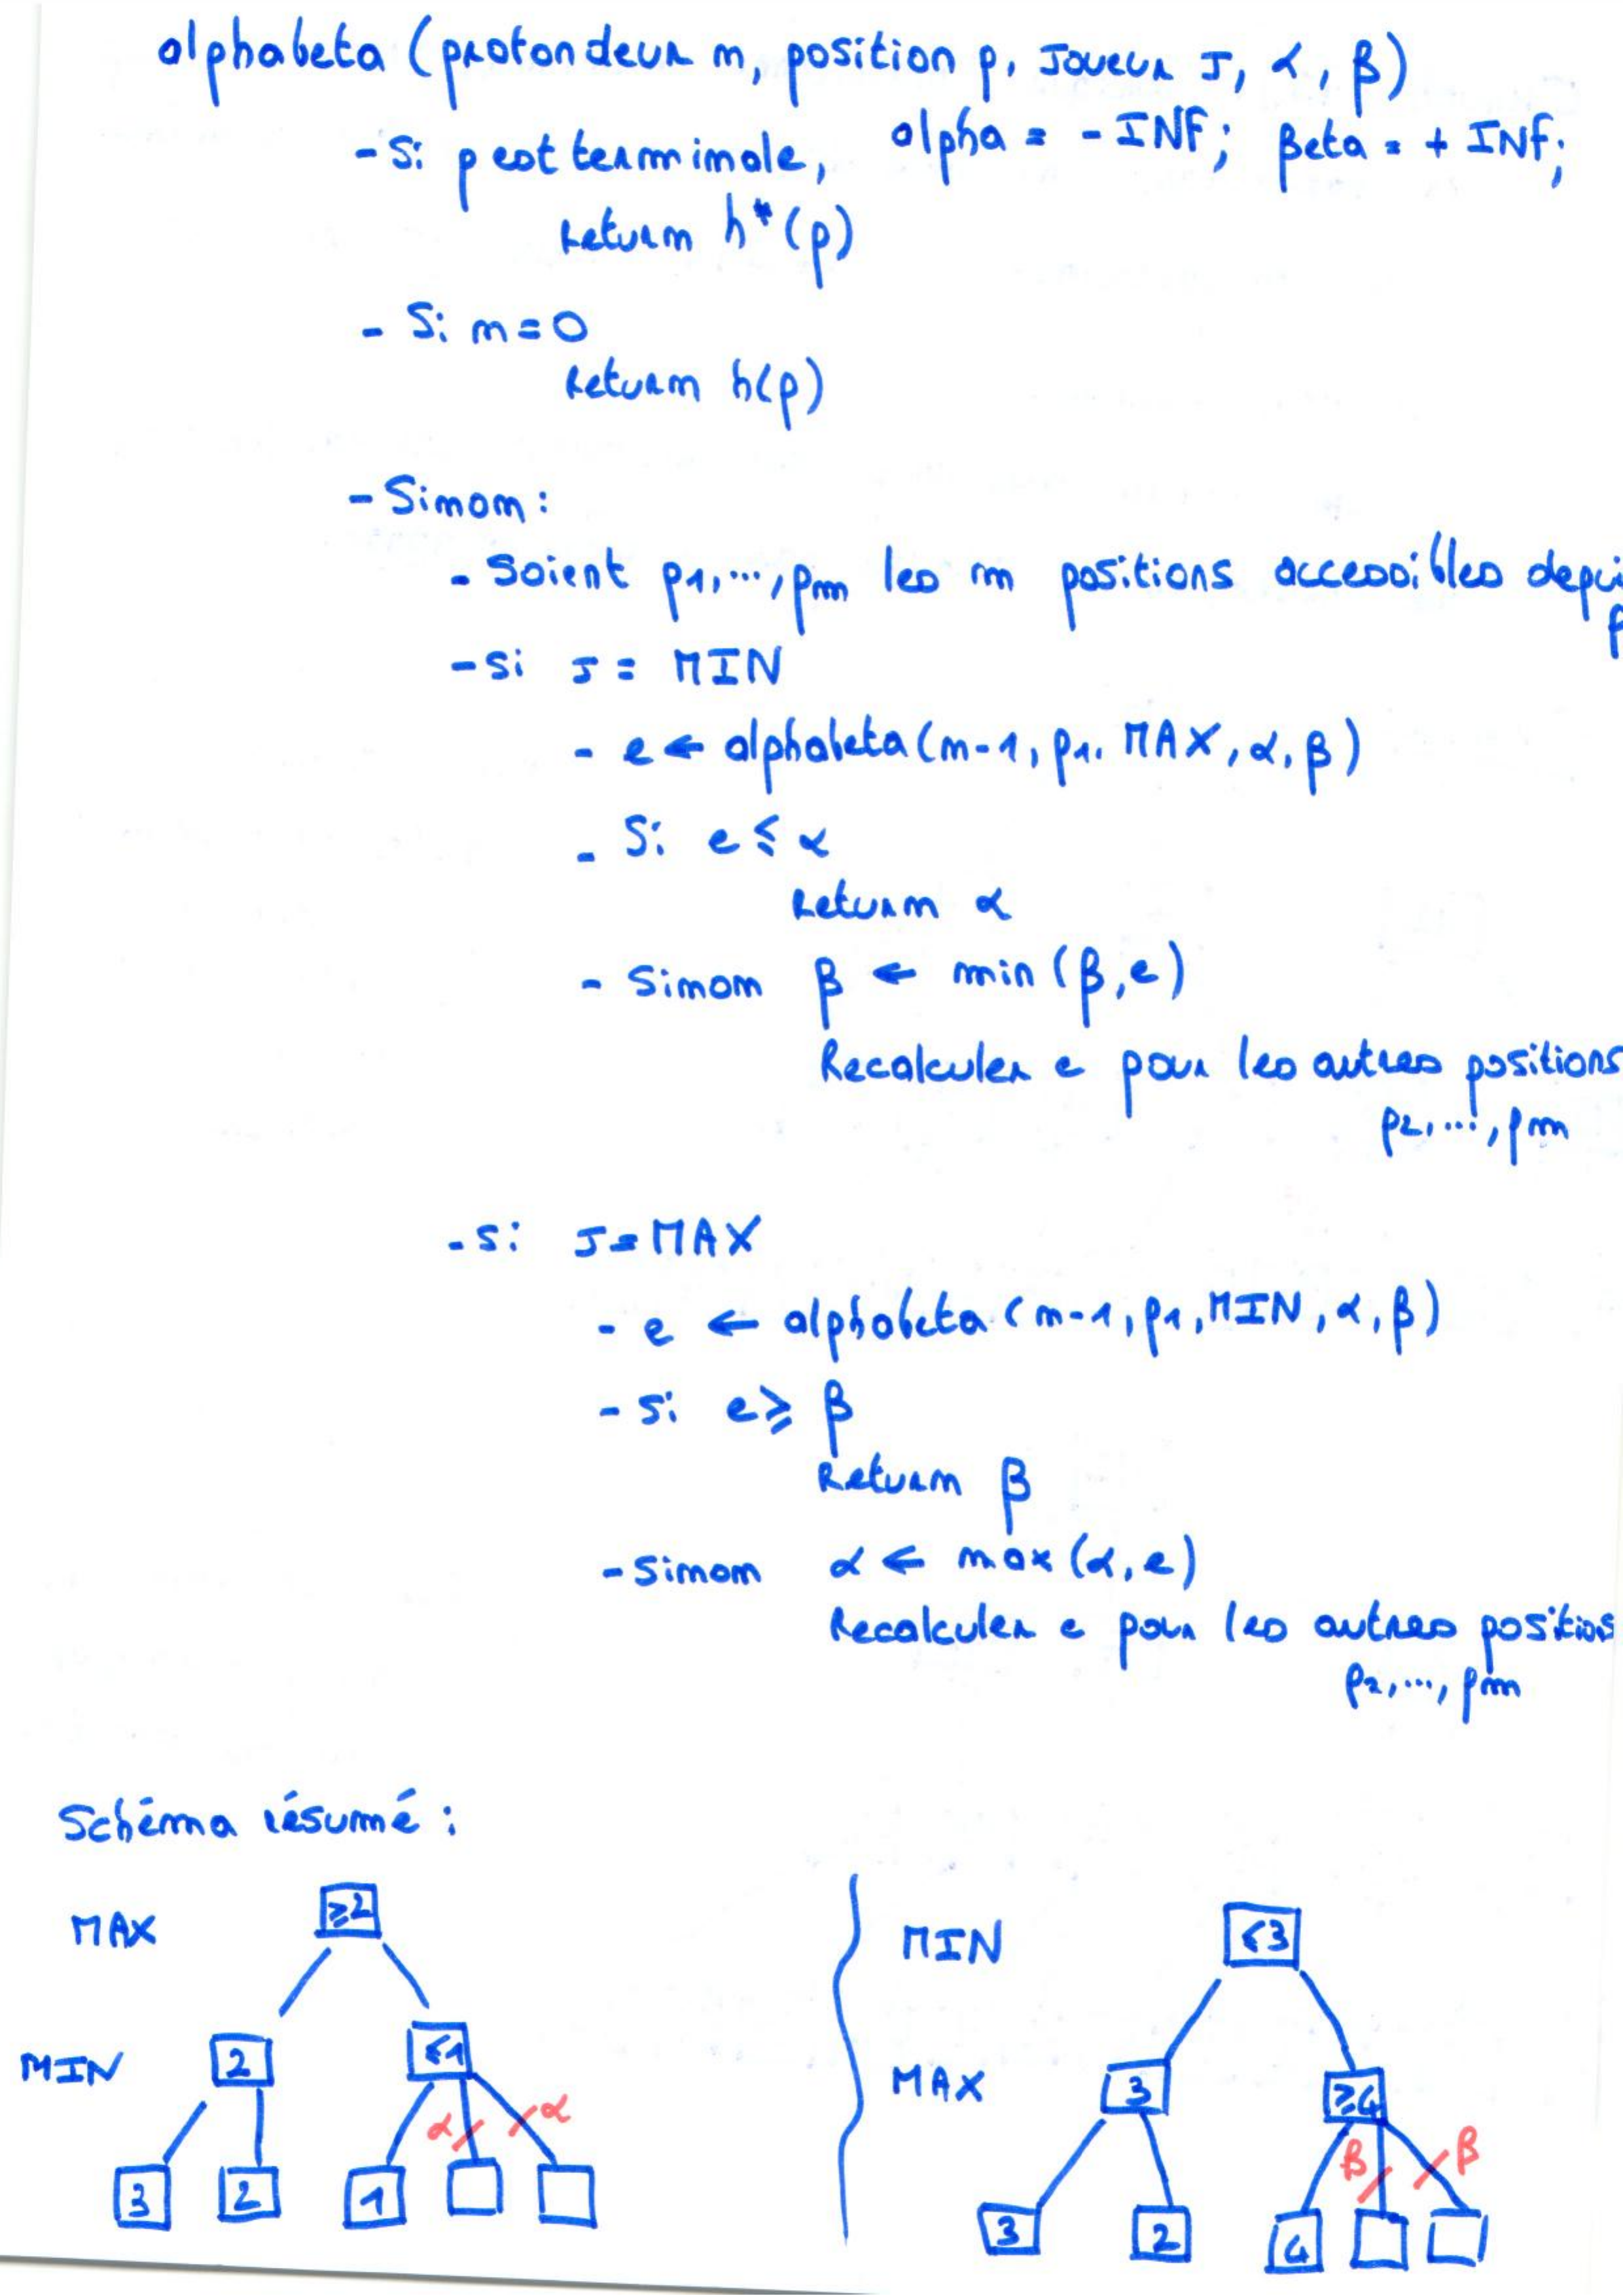 alphabeta (profondeur n, position p, Joueur J, α, β)
alpha = - INF; Beta = + INF;
- Si p est terminale,
return h*(p)
- Si n = 0
return h(p)
- Sinon :
- Soient p1, ..., pm les m positions accessibles depui
p
- si J = MIN
- e ← alphabeta(n-1, p1, MAX, α, β)
- Si e ≤ α
return α
- Sinon β ← min (β, e)
Recalculer e pour les autres positions
p2, ..., pm
- si J = MAX
- e ← alphabeta (n-1, p1, MIN, α, β)
- si e ≥ β
Return β
- Sinon α ← max (α, e)
Recalculer e pour les autres positions
p2, ..., pm
Schéma résumé :
MAX ≥2
MIN 2 ≤1
α α
3 2 1
MIN ≤3
MAX 3 ≥4
β β
3 2 4